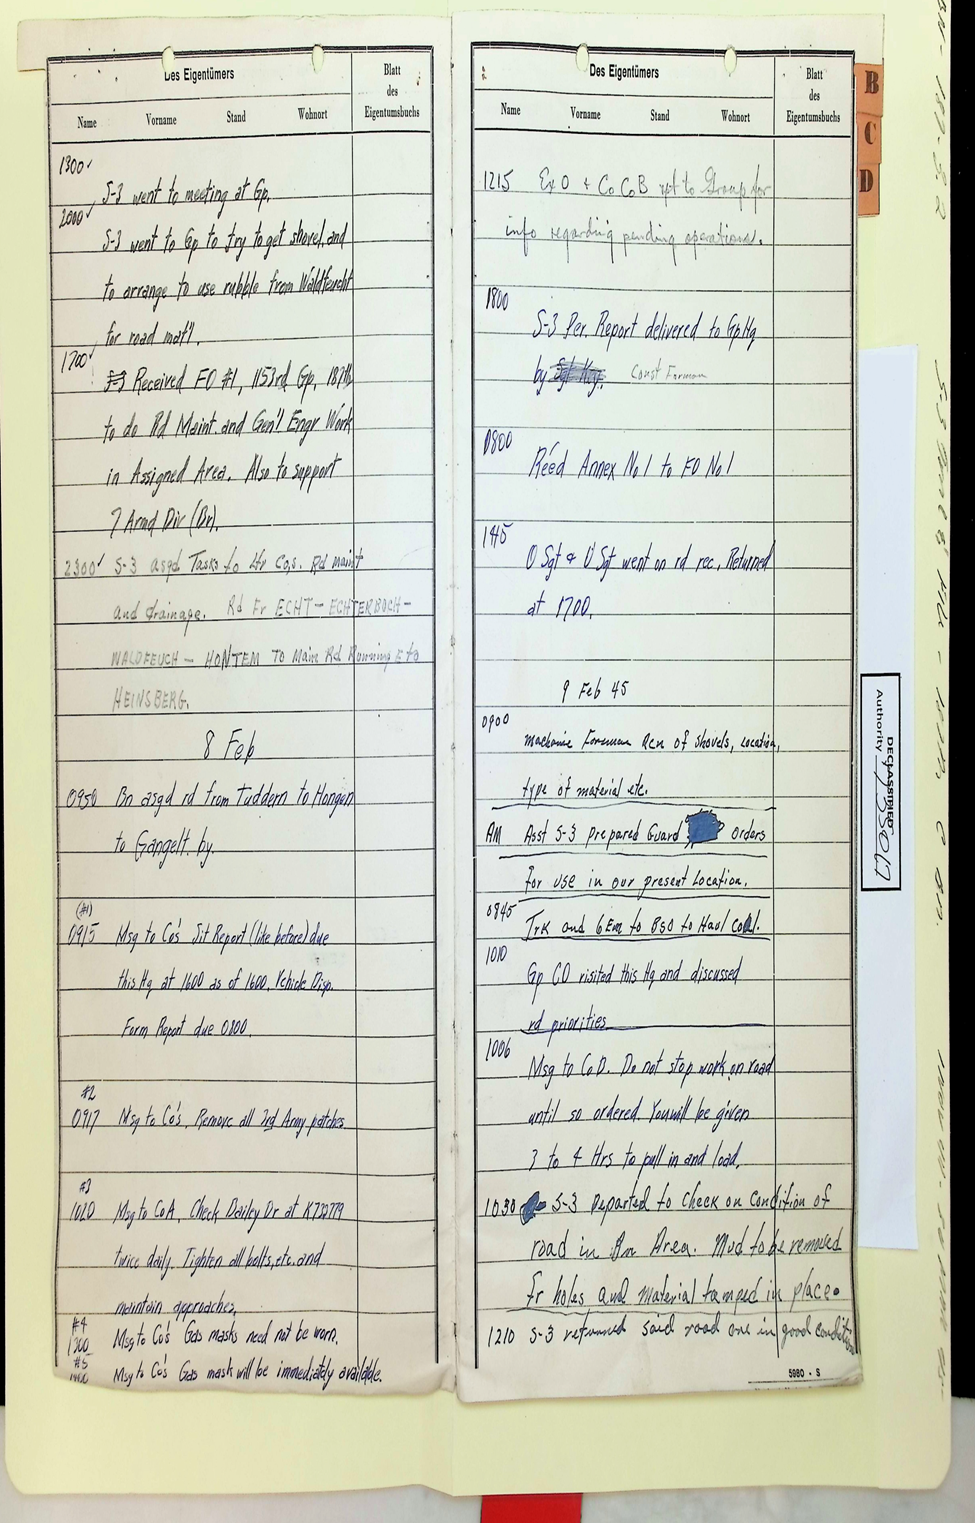 Des Eigentümers
Blatt
des
Eigentumsbuchs
Name Vorname Stand Wohnort
1300✓
S-3 went to meeting at Gp.
2000✓
S-3 went to Gp to try to get shovel and
to arrange to use rubble from Waldfeucht
for road mat'l.
1700✓
S-3 Received FO #1, 1153rd Gp, 187th
to do Rd Maint and Gen'l Engr Work
in Assigned Area. Also to support
7 Armd Div (Br).
2300✓ S-3 asgd Tasks to Ltr Co,s. Rd maint
and drainage. Rd Fr ECHT - ECHTERBOCH -
WALDFEUCH - HONTEM To Main Rd Running E to
HEINSBERG.
8 Feb
0950 Bn asgd rd from Tuddern to Hongen
to Gangelt. by.
(#1)
0915 Msg to Co's Sit Report (like before) due
this Hq at 1600 as of 1600. Vehicle Disp.
Form Report due 0800.
#2
0917 Msg to Co's. Remove all 3rd Army patches
#3
1020 Msg to CoA. Check Bailey Br at K722779
twice daily. Tighten all bolts, etc. and
maintain approaches.
#4
1300 Msg to Co's Gas masks need not be worn.
#5
1400 Msg to Co's Gas mask will be immediately available.
Des Eigentümers
Blatt
des
Eigentumsbuchs
Name Vorname Stand Wohnort
1215 Ex O + Co CoB rpt to Group for
info regarding pending operations.
1800
S-3 Per. Report delivered to Gp Hq
by Sgt Key. Const Forman
0800
Rec'd Annex No 1 to FO No 1
1415
O Sgt & U Sgt went on rd rec. Returned
at 1700.
9 Feb 45
0900
Machine Forman Rcn of Shovels, Location,
type of material etc.
AM Asst S-3 prepared Guard Orders
for use in our present Location.
0845
Trk and 6 Em to BSO to Haul Coal.
1010
Gp CO visited this Hq and discussed
rd priorities
1006
Msg to Co D. Do not stop work on road
until so ordered. You will be given
3 to 4 Hrs to pull in and load.
1030 S-3 Departed to Check on Condition of
road in Bn Area. Mud to be removed
fr holes and material tamped in place.
1210 S-3 returned said road one in good condition
5980 - S
B
C
D
DECLASSIFIED
Authority 735017